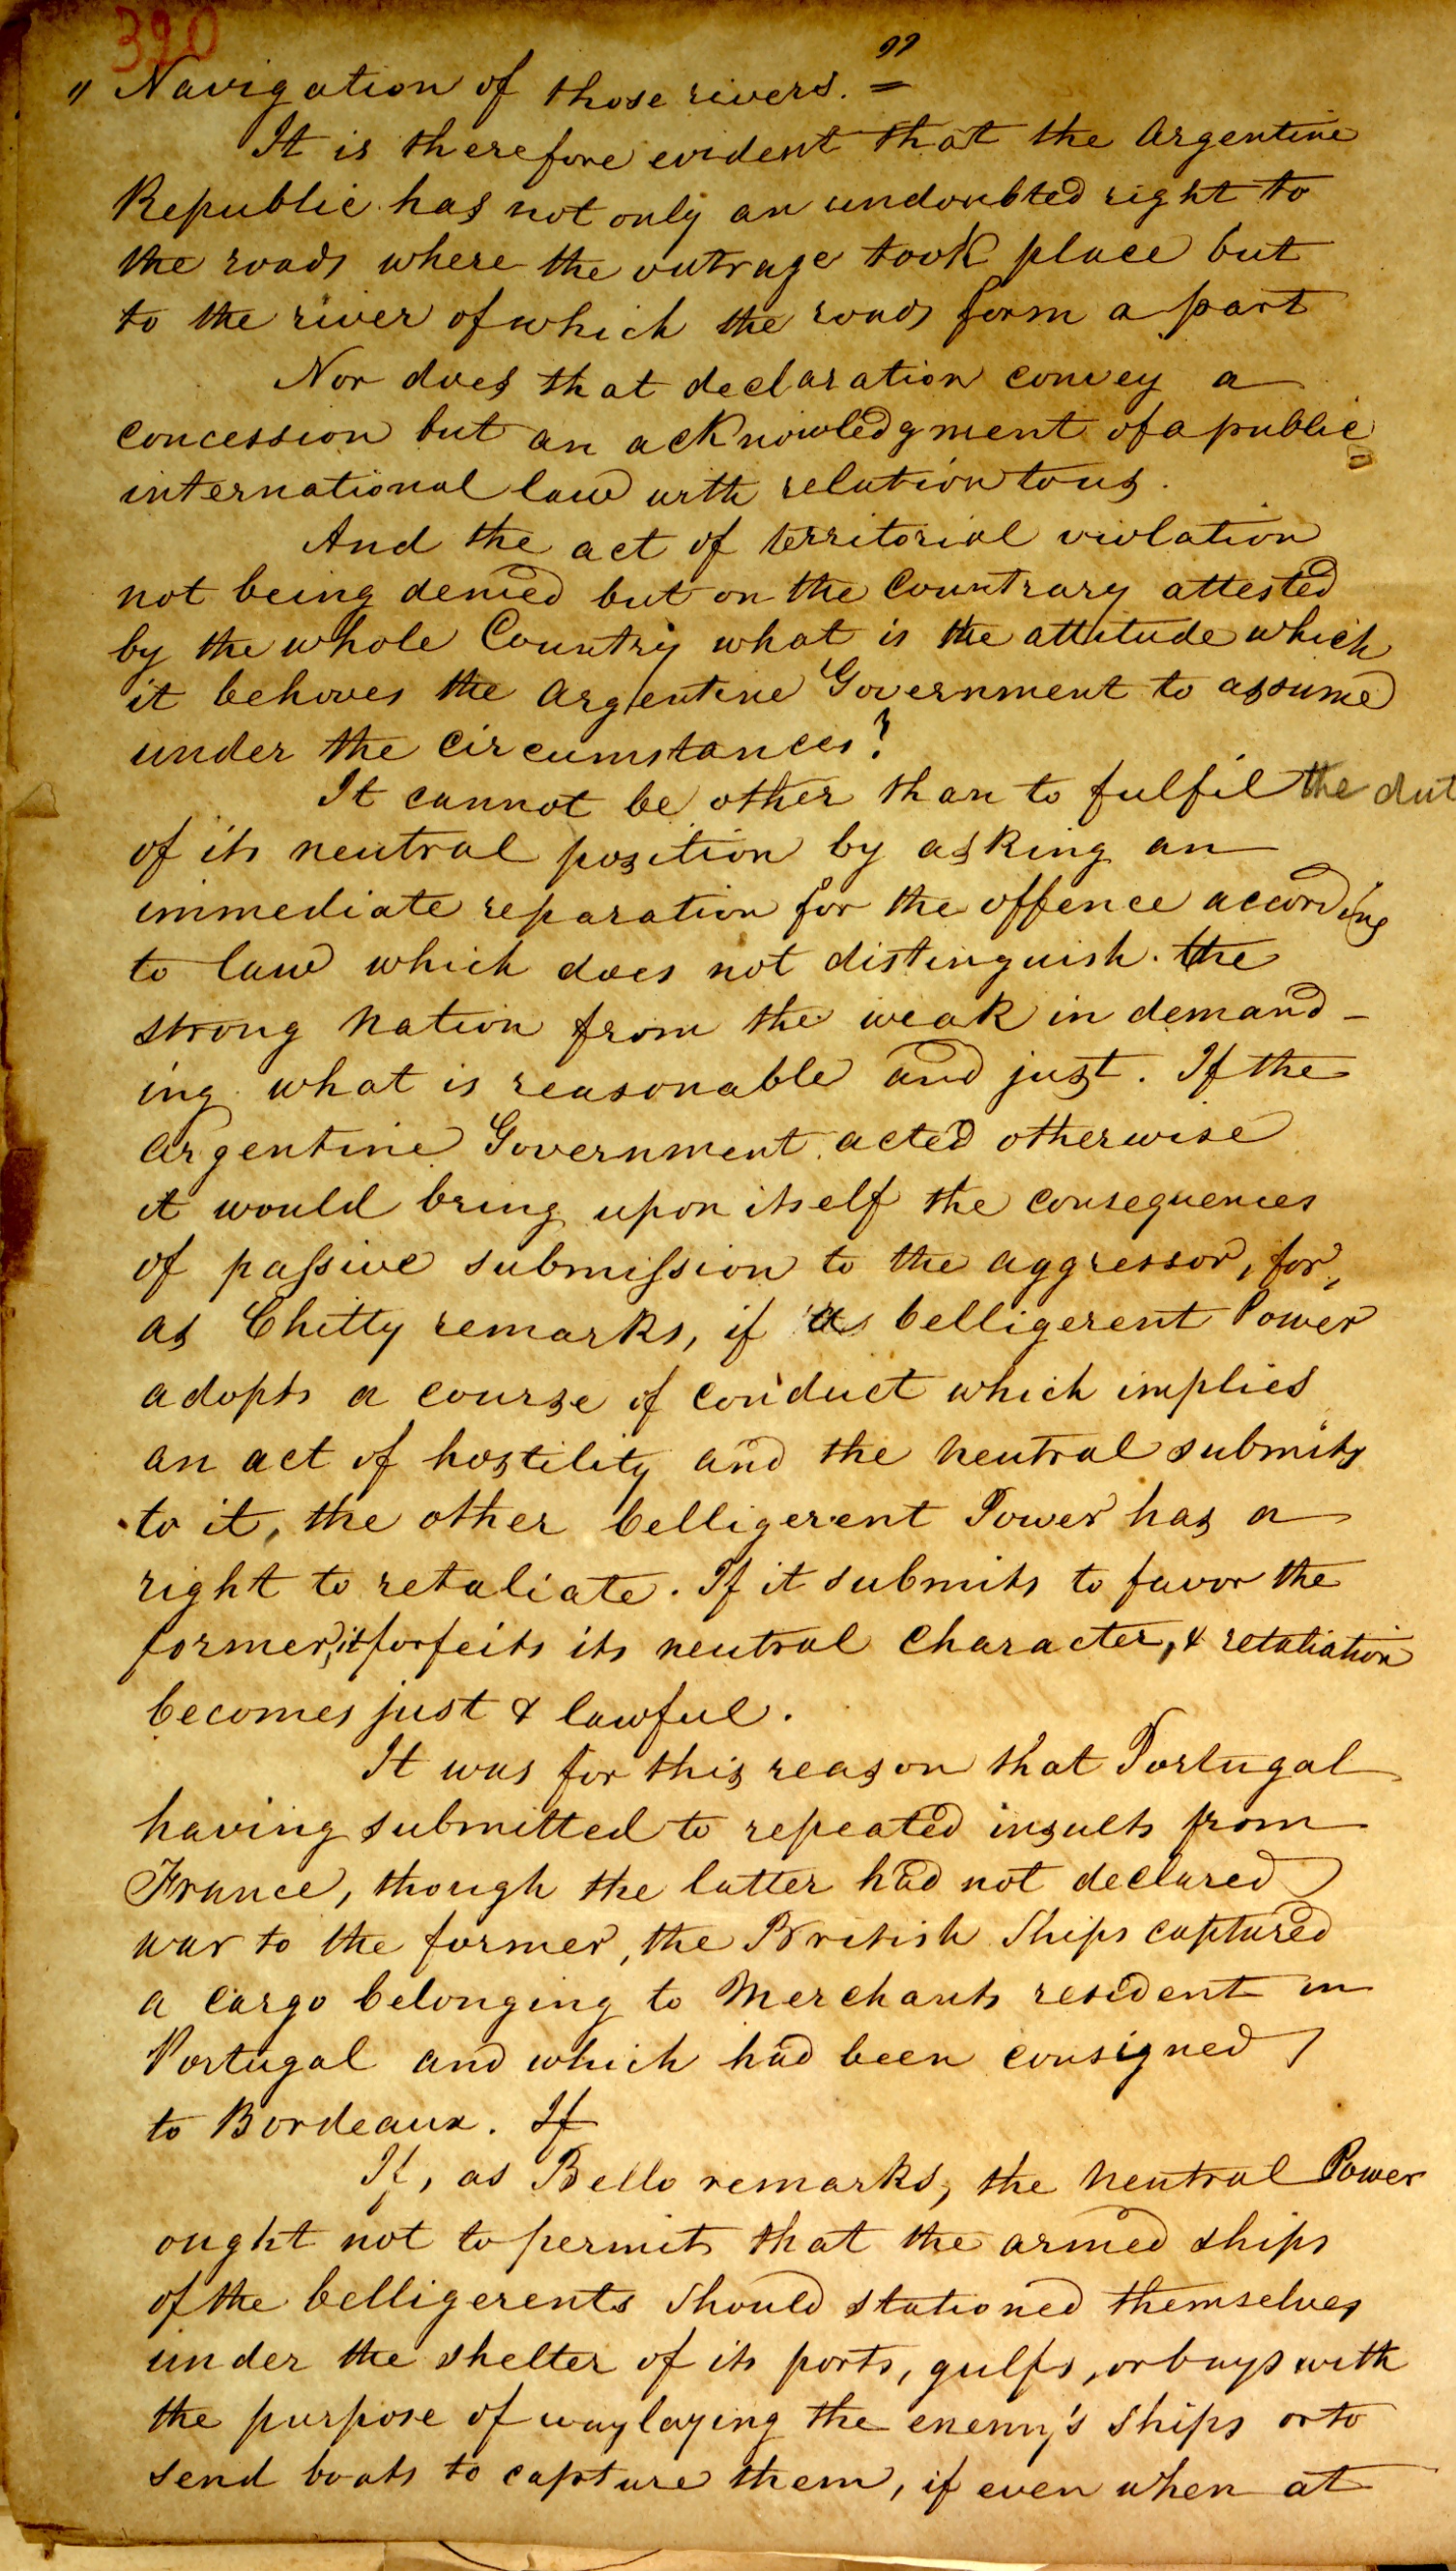 390
" Navigation of those rivers. "
It is therefore evident that the Argentine
Republic has not only an undoubted right to
the roads where the outrage took place but
to the river of which the roads form a part
Nor does that declaration convey a
concession but an acknowledgment of a public
international law with relation to us.
And the act of territorial violation
not being denied but on the Countrary attested
by the whole Country what is the attitude which
it behoves the Argentine Government to assume
under the circumstances?
It cannot be other than to fulfil the dut
of its neutral position by asking an
immediate reparation for the offence according
to law which does not distinguish the
strong nation from the weak in demand-
ing what is reasonable and just. If the
Argentine Government acted otherwise
it would bring upon itself the consequences
of passive submission to the aggressor, for,
as Chitty remarks, if a belligerent Power
adopts a course of conduct which implies
an act of hostility and the neutral submits
to it, the other belligerent Power has a
right to retaliate. If it submits to favor the
former, it forfeits its neutral character, & retaliation
becomes just & lawful.
It was for this reason that Portugal
having submitted to repeated insults from
France, though the latter had not declared
war to the former, the British Ships captured
a cargo belonging to Merchants resident in
Portugal and which had been consigned
to Bordeaux. If
If, as Bello remarks, the neutral Power
ought not to permit that the armed ships
of the belligerents should stationed themselves
under the shelter of its ports, gulfs, or bays with
the purpose of waylaying the enemy's ships or to
send boats to capture them, if even when at